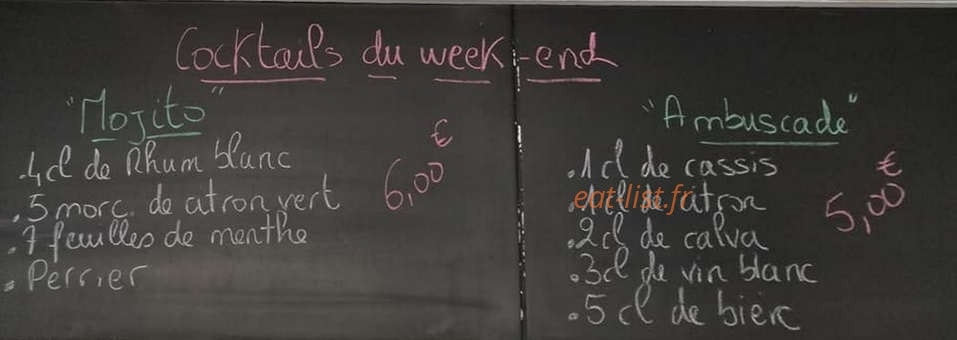 Cocktails du week-end
"Mojito"
.4cl de Rhum blanc
.5 morc. de citron vert
.7 feuilles de menthe
.Perrier
6,00 €
"Ambuscade"
.1cl de cassis
.1cl de citron
.2cl de calva
.3cl de vin blanc
.5cl de bière
5,00 €
eat-list.fr